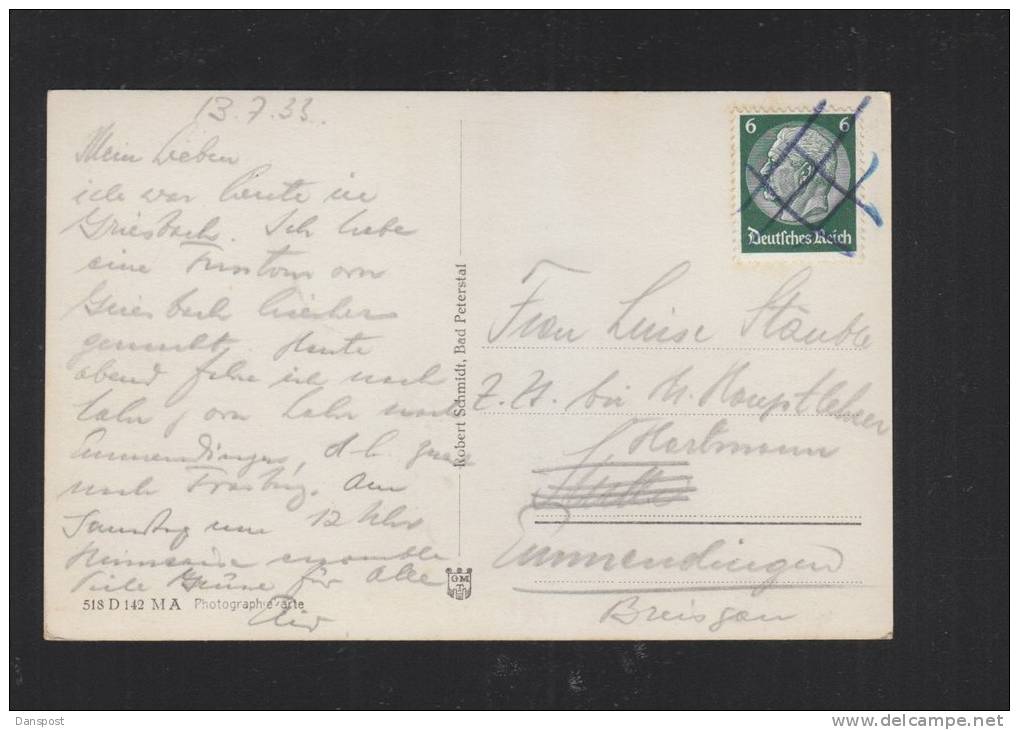 13.7.33.
Mein Lieben
ich war heute in
Griesbach. Ich habe
eine
Griesbach hierher
gemacht. Heute
abend fahre ich nach
Lahr von Lahr nach
Emmendingen, d.h.
nach Freiburg. Am
Samstag um 12 Uhr
Viele Grüsse für Alle
518 D 142 M A Photographiekarte
Robert Schmidt, Bad Peterstal
GM
6 6
Deutsches Reich
Frau Luise Stäuble
Z. Zt. bei H. Hauptlehrer
Hartmann
Emmendingen
Breisgau
Danspost
http://www.delcampe.net